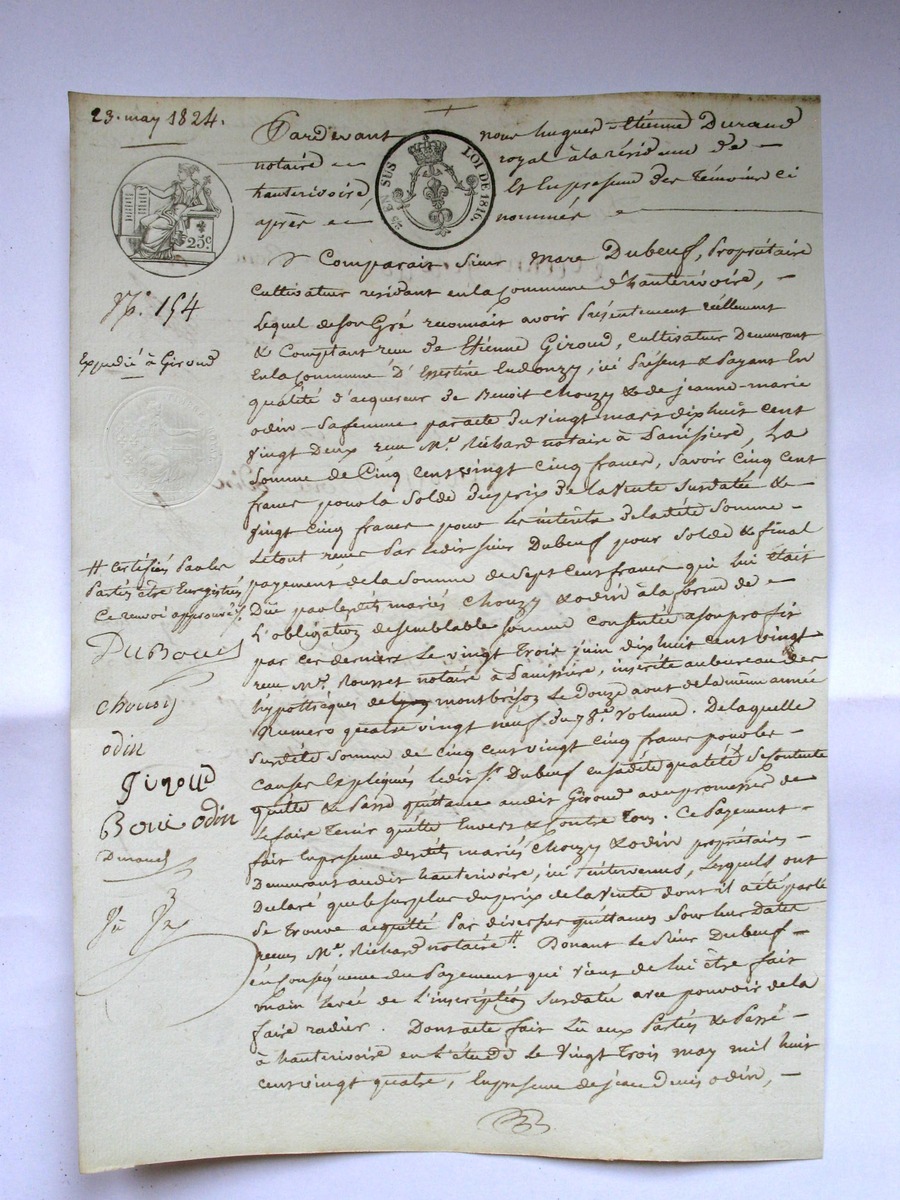 23. may 1824.
Pardevant nous hugues Etienne Durand
notaire royal à la résidence de
hauterivoire Et En presence des Temoins ci
après nommés
25 EN SUS LOI DE 1816.
25c
Comparait Sieur Marc Dubeuf, Propriétaire
Cultivateur residant en la Commune d'hauterivoire,
Lequel de son Gré reconnait avoir Présentement réellement
& Comptant reçu de Etienne Giroud, cultivateur Demeurant
En la Commune D'Essertine Endonzy, ici Présent & Payant En
qualité d'acquereur de Benoit Chouzy & de jeanne-marie
odin Sa femme par acte du vingt mars dix huit cent
vingt Deux reçu Me. Richard notaire à , La
Somme de Cinq Cent vingt cinq francs, Savoir Cinq Cent
francs pour la Solde du prix de la vente Susdatée &
vingt cinq francs pour les intérêts de ladite Somme
Le tout reçu Par ledit sieur Dubeuf pour Solde & final
payement de la Somme de Sept Cent francs qui lui était
Düe par lesdits mariés Chouzy & odin à la forme de
L'obligation de semblable Somme Consentie a son profit
par ces derniers le vingt Trois juin dix huit Cent vingt
reçu Me. Rousset notaire à , inscrite au bureau des
hypothèques de montbrison Le Douze aout de la même année
Numero quatre vingt neuf du 78e. Volume. De laquelle
Susdite Somme de cinq cent vingt cinq francs pour les
Causes Expliqués ledit Sr. Dubeuf en sadite qualité Se Contente
quitte & Passe quittance audit Giroud avec promesses de
le faire Tenir quitte Envers & Contre Tous. Ce Payement
fait En presence desdits mariés Chouzy & odin propriétaires
Demeurant audit hauterivoire, ici intervenus, Lesquels ont
Declaré que le Surplus du prix de la Vente dont il a été parlé
Se trouve acquitté Par diverses quittances Sous leur Dates
reçues Me. Richard notaire #. Donnant le Sieur Dubeuf
en Conséquence du Payement qui vient de lui être fait
main Levée de L'inscription Susdatée avec pouvoir de la
faire radier. Dont acte fait Lu aux Parties & Passé
à hauterivoire en L'étude Le Vingt Trois may mil huit
Cent vingt quatre, En presence de jean Denis odin,
No. 154
Expedié à Giroud
# Certifiés Par les
Parties être Enregistrés
Ce renvoi approuvé.
DuBoeuf
Chouzy
odin
Giroud
odin
Durand